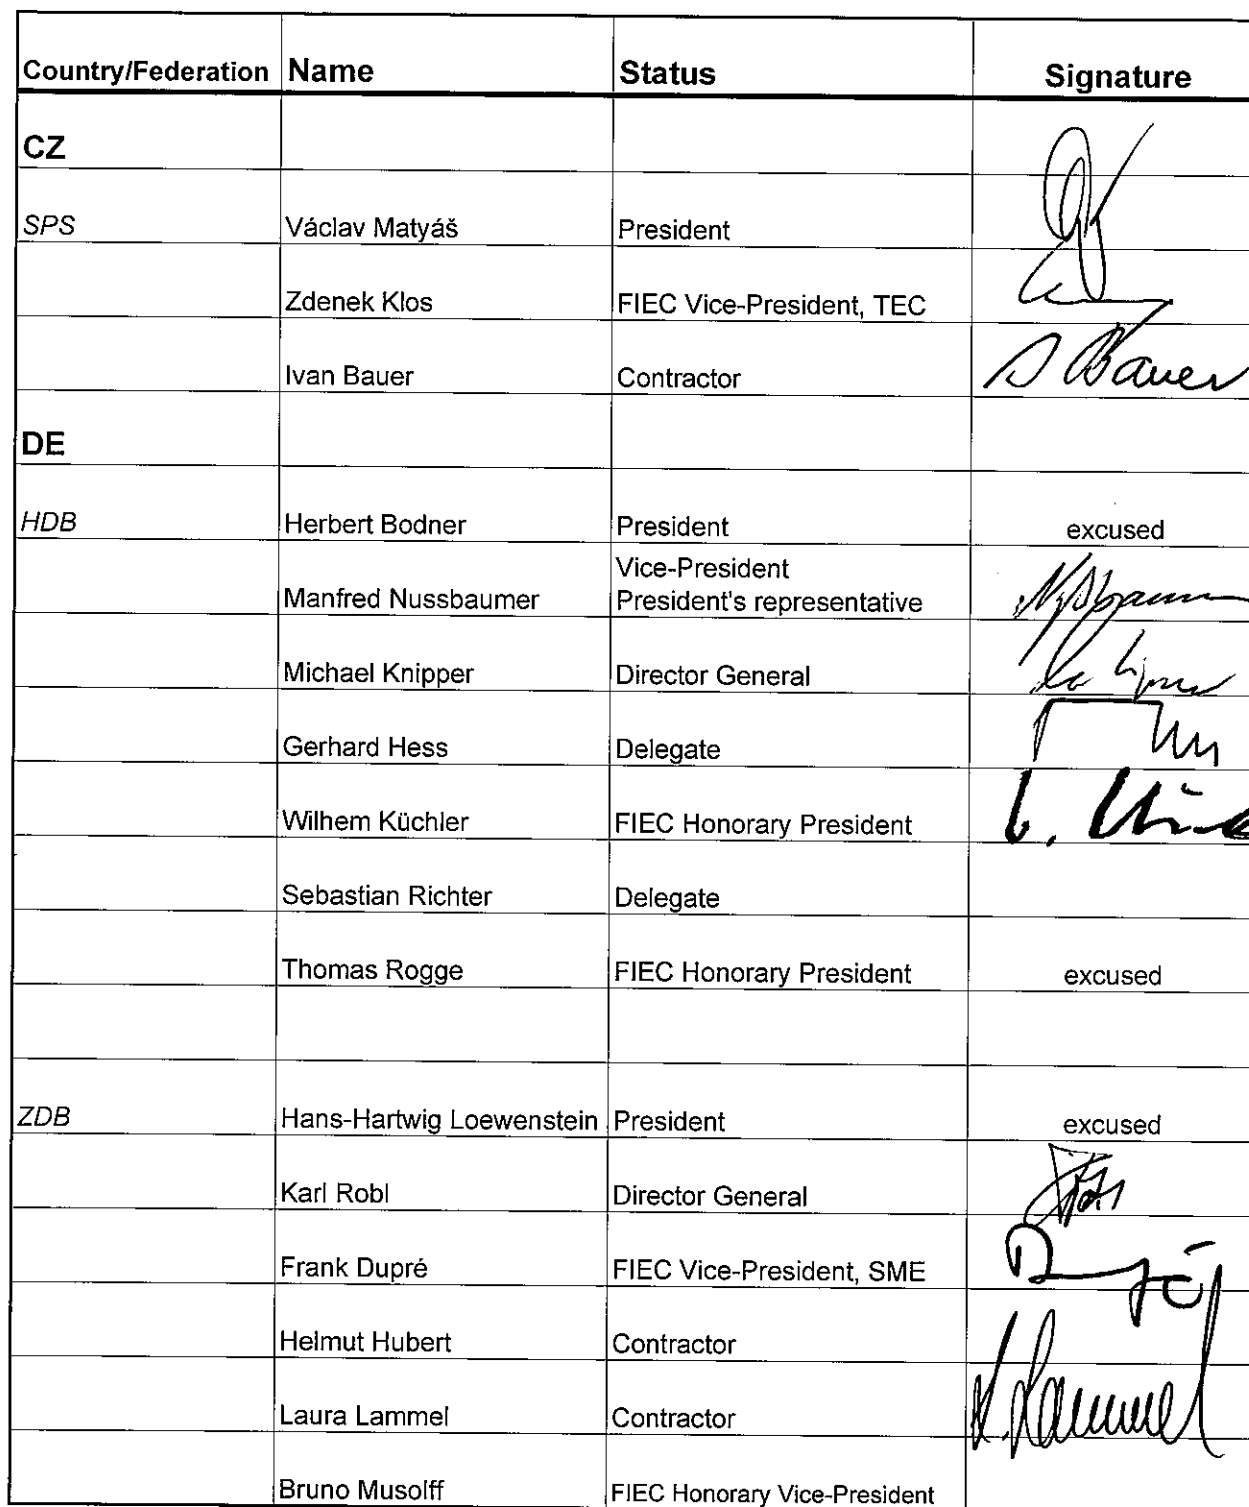 Country/Federation Name Status Signature
CZ
SPS Václav Matyáš President
Zdenek Klos FIEC Vice-President, TEC
Ivan Bauer Contractor Bauer
DE
HDB Herbert Bodner President excused
Vice-President
Manfred Nussbaumer President's representative
Michael Knipper Director General
Gerhard Hess Delegate
Wilhem Küchler FIEC Honorary President
Sebastian Richter Delegate
Thomas Rogge FIEC Honorary President excused
ZDB Hans-Hartwig Loewenstein President excused
Karl Robl Director General
Frank Dupré FIEC Vice-President, SME
Helmut Hubert Contractor
Laura Lammel Contractor Lammel
Bruno Musolff FIEC Honorary Vice-President